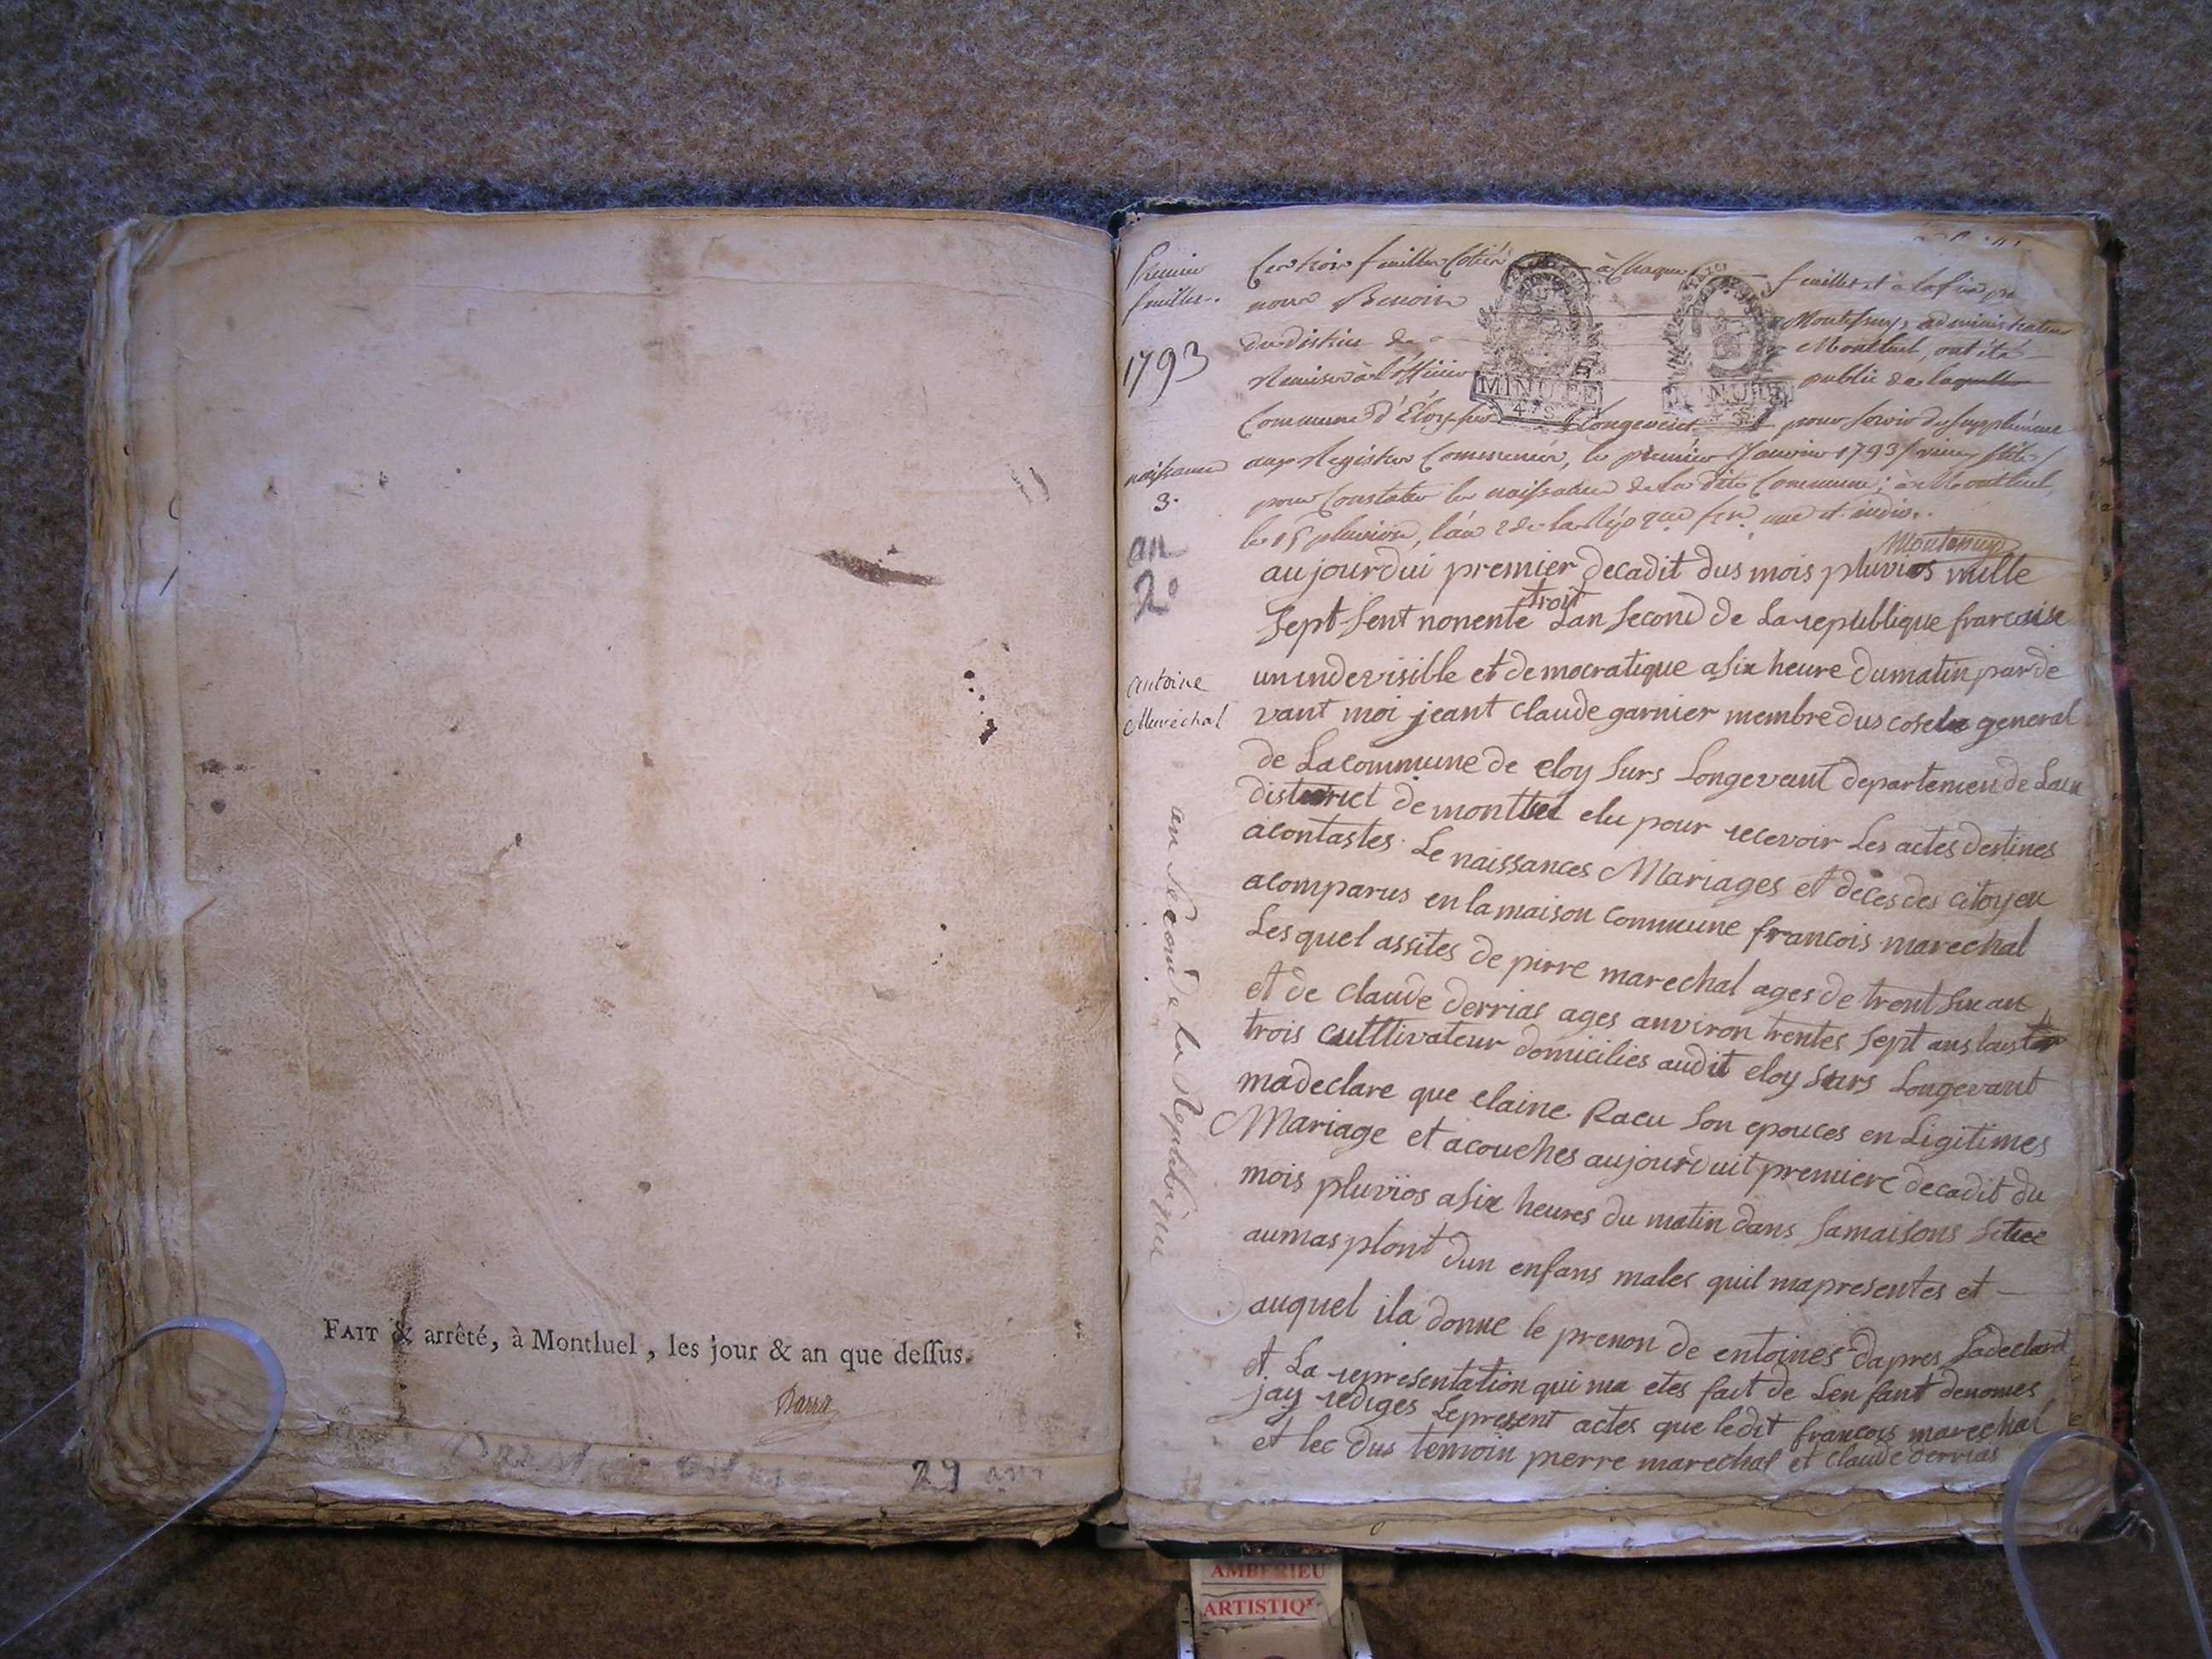 FAIT & arrêté, à Montluel, les jour & an que deſſus.
Barra
29 an
Premier
feuillet.
1793
naissance
3.
an
2e
antoine
Maréchal
an second de la Republique
Ces trois feuillets Cottés à Chaque feuillet et à la fin par
nous Benoit Montessuy, administrateur
du district de Montluel, ont été
Remis à l'officier public de laquelle
Commune d'Éloy sur Longevent pour servir de supplément
aux Registres Commencés, le premier Janvier 1793 / vieux stile /
pour Constater les naissances de la dite Commune; à Montluel,
le 15 pluviose, l'an 2 de la Rép
Montessuy
MINUTE
4 S
MINUTE
aujourdui premier decadit dus mois pluvios mille
sept sent nonente troit Lan second de La republique francaise
un indevisible et democratique asix heure dumatin par de
vant moi jeant claude garnier membre dus general
de Lacommune de eloy surs Longevant departemen de Lain
district de montluel elu pour recevoir Les actes destines
acontastes Le naissances Mariages et deces des citoyen
acomparus en lamaison commune francois marechal
Lesquel assites de pirre marechal ages de trent six an
et de claude derrias ages anviron trentes sept ans
trois culltivateur domicilies audit eloy surs Longevant
madeclare que claine Racu son epouces en Ligitimes
Mariage et acouches aujourduit premiere decadit du
mois pluvios asix heures du matin dans samaisons situee
aumas plont dun enfans males quil mapresentes et
auquel ila donne le prenon de entoines dapres sadeclarat
et La representation qui ma etes fait de Len fant denomes
jay rediges Lepresent actes que ledit francois marechal
et lec dus temoin pierre marechal et claude derrias
AMBERIEU
ARTISTIQ